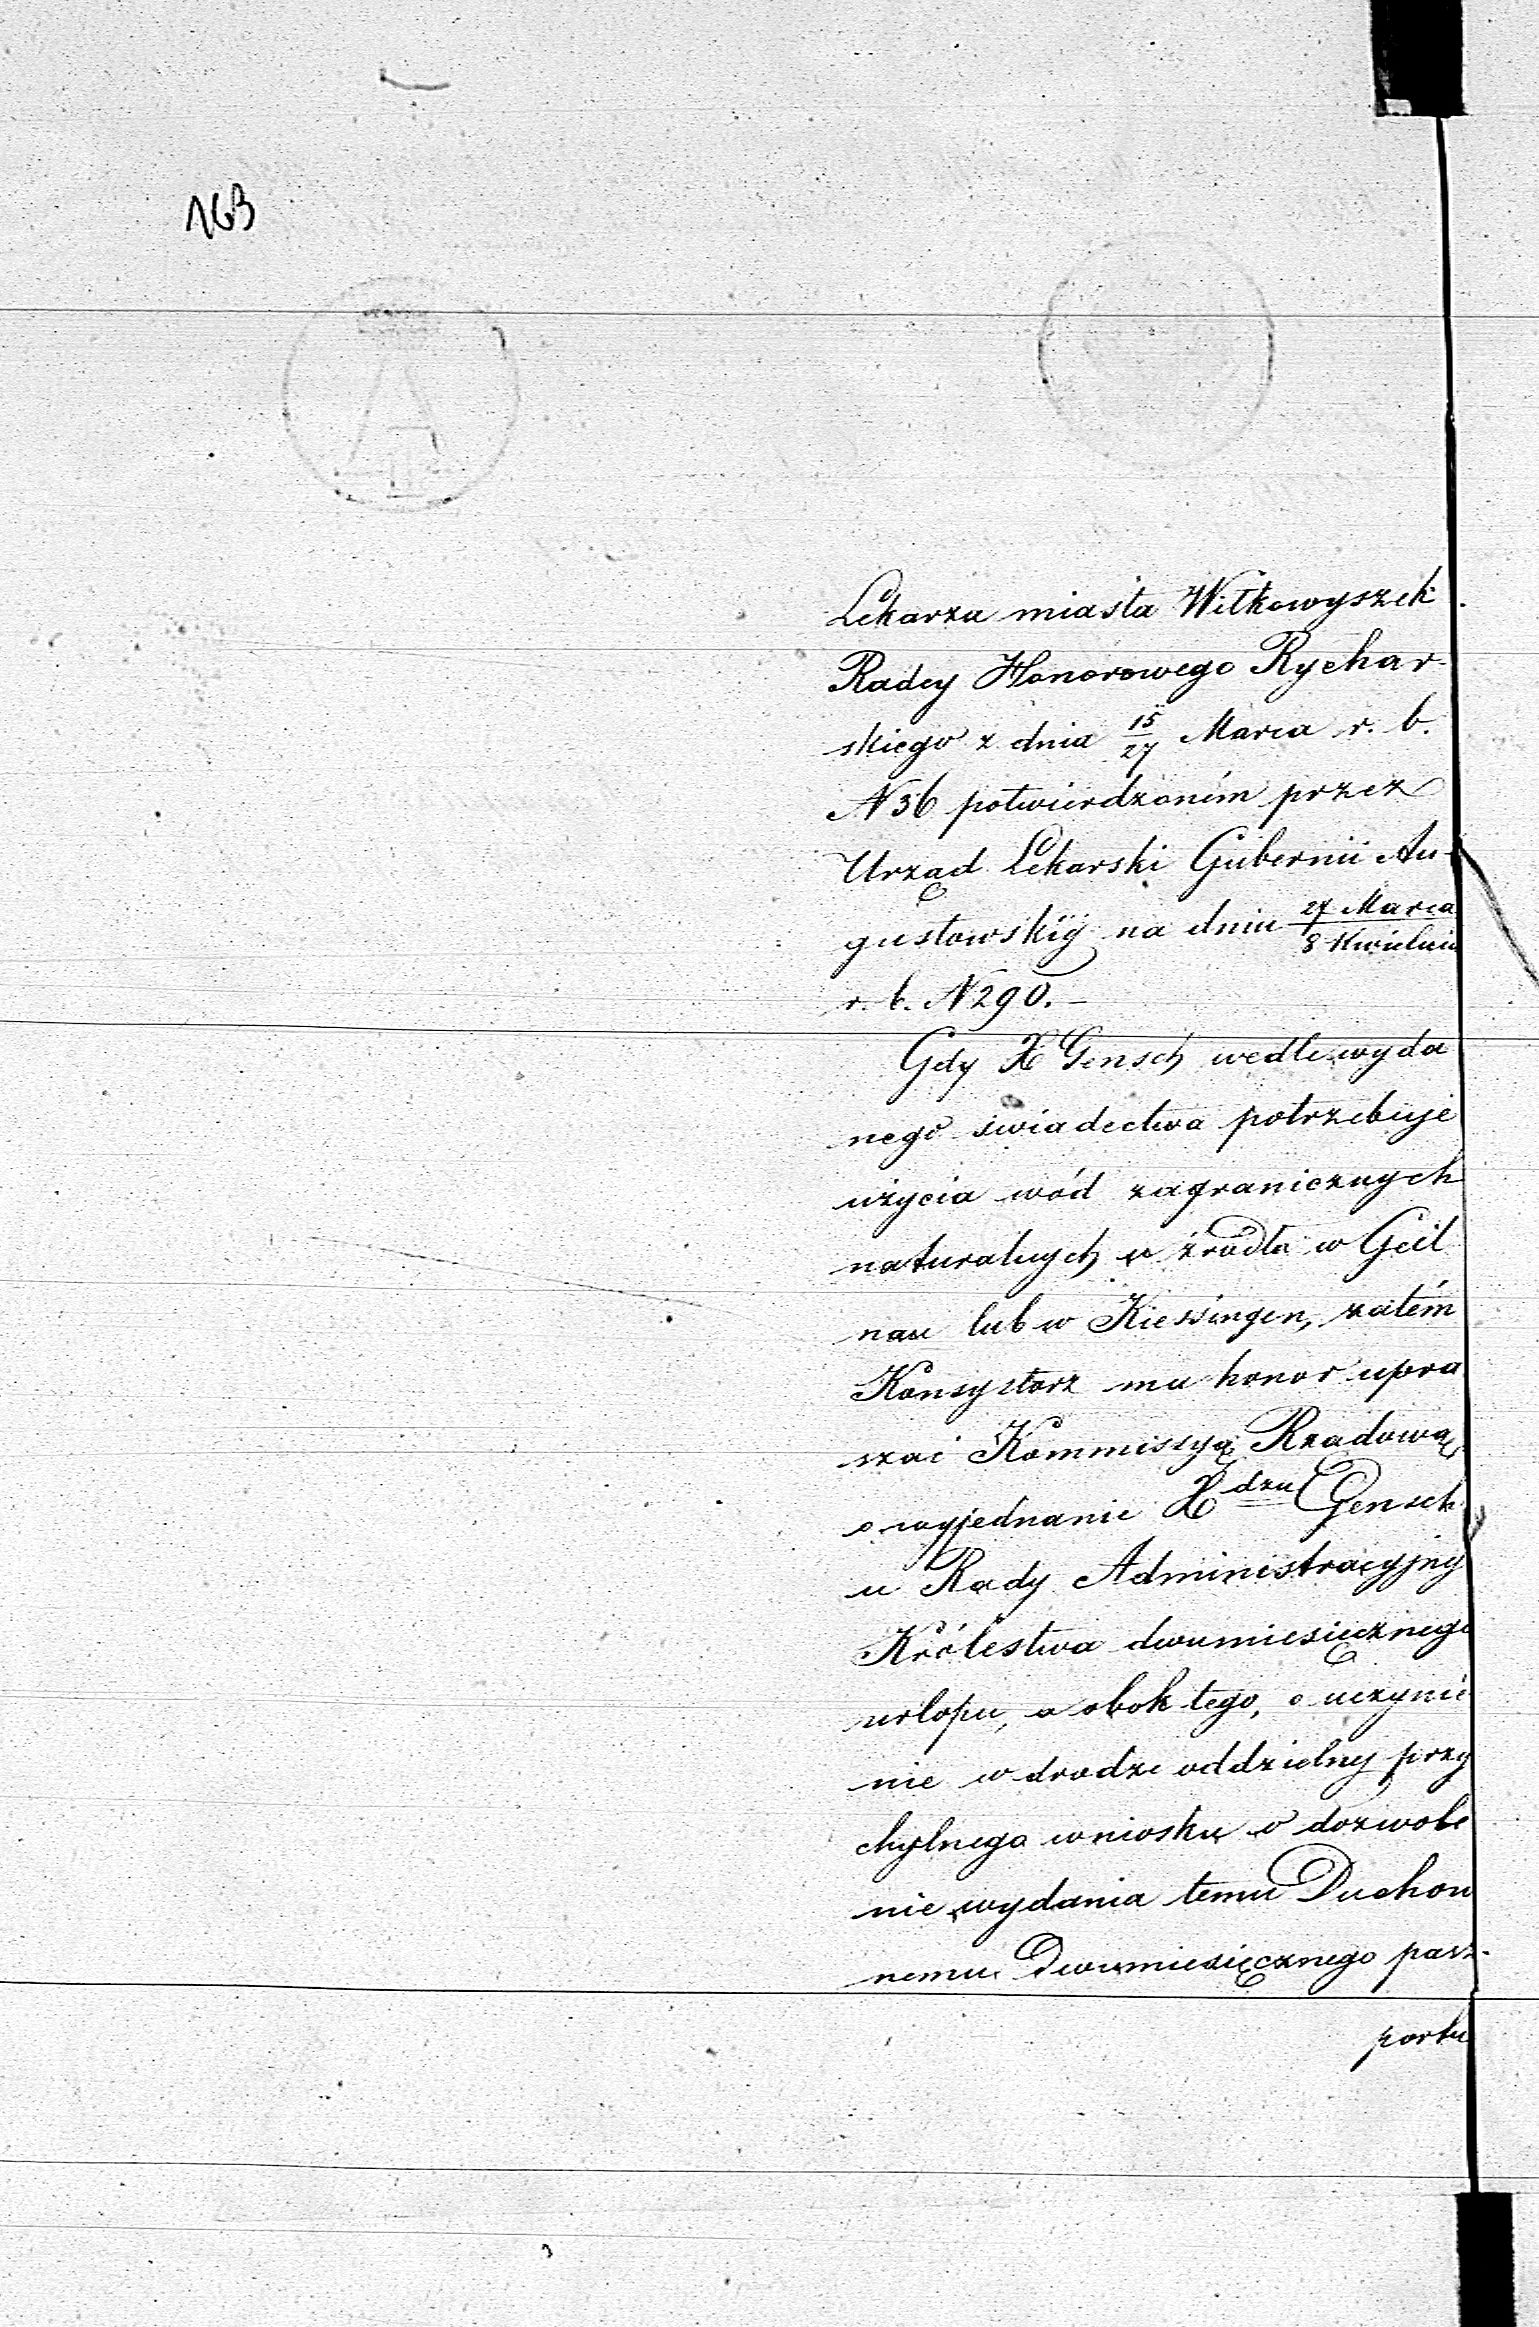 163
Lekarza miasta Wiłkowyszek
Radcy Honorowego Rychar-
skiego z dnia 15/27 Marca r. b.
N 36 potwierdzoném przez
Urząd Lekarski Gubernii Au-
gustowskiĳ na dniu 27 Marca/8 Kwietnia
r. b. N 290. –
Gdy X Gensch wedle wyda
nego świadectwa potrzebuje
użycia wód zagranicznych
naturalnych u źrodła w Geil
nau lub w Kiessingen, zatém
Konsystorz ma honor upra
szać Kommissyą Rządową
o wyjednanie Xdzu Gensch
u Rady Administracyjny
Królestwa dwumiesięcznego
urlopu, a obok tego, o uczynie
nie w drodze oddzielny przy
chylnego wniosku o dozwole
nie wydania temu Duchow
nemu Dwumiesięcznego pasz-
portu